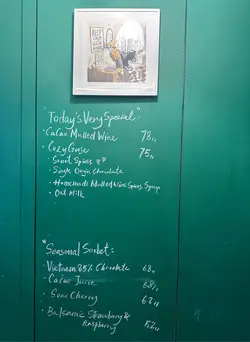 "Today's Very Special"
· Cacao Mulled Wine 78,,
· Cozy Goose 75,,
· Single Origin Chocolate
· Homemade Mulled Wine Spices Syrup
· Oat Milk
"Seasonal Sorbet=
· Vietnam 85% Chocolate 68,,
· Cacao Juice 68,,
· Sour Cherry 62,,
· Balsamic Strawberry &
Raspberry